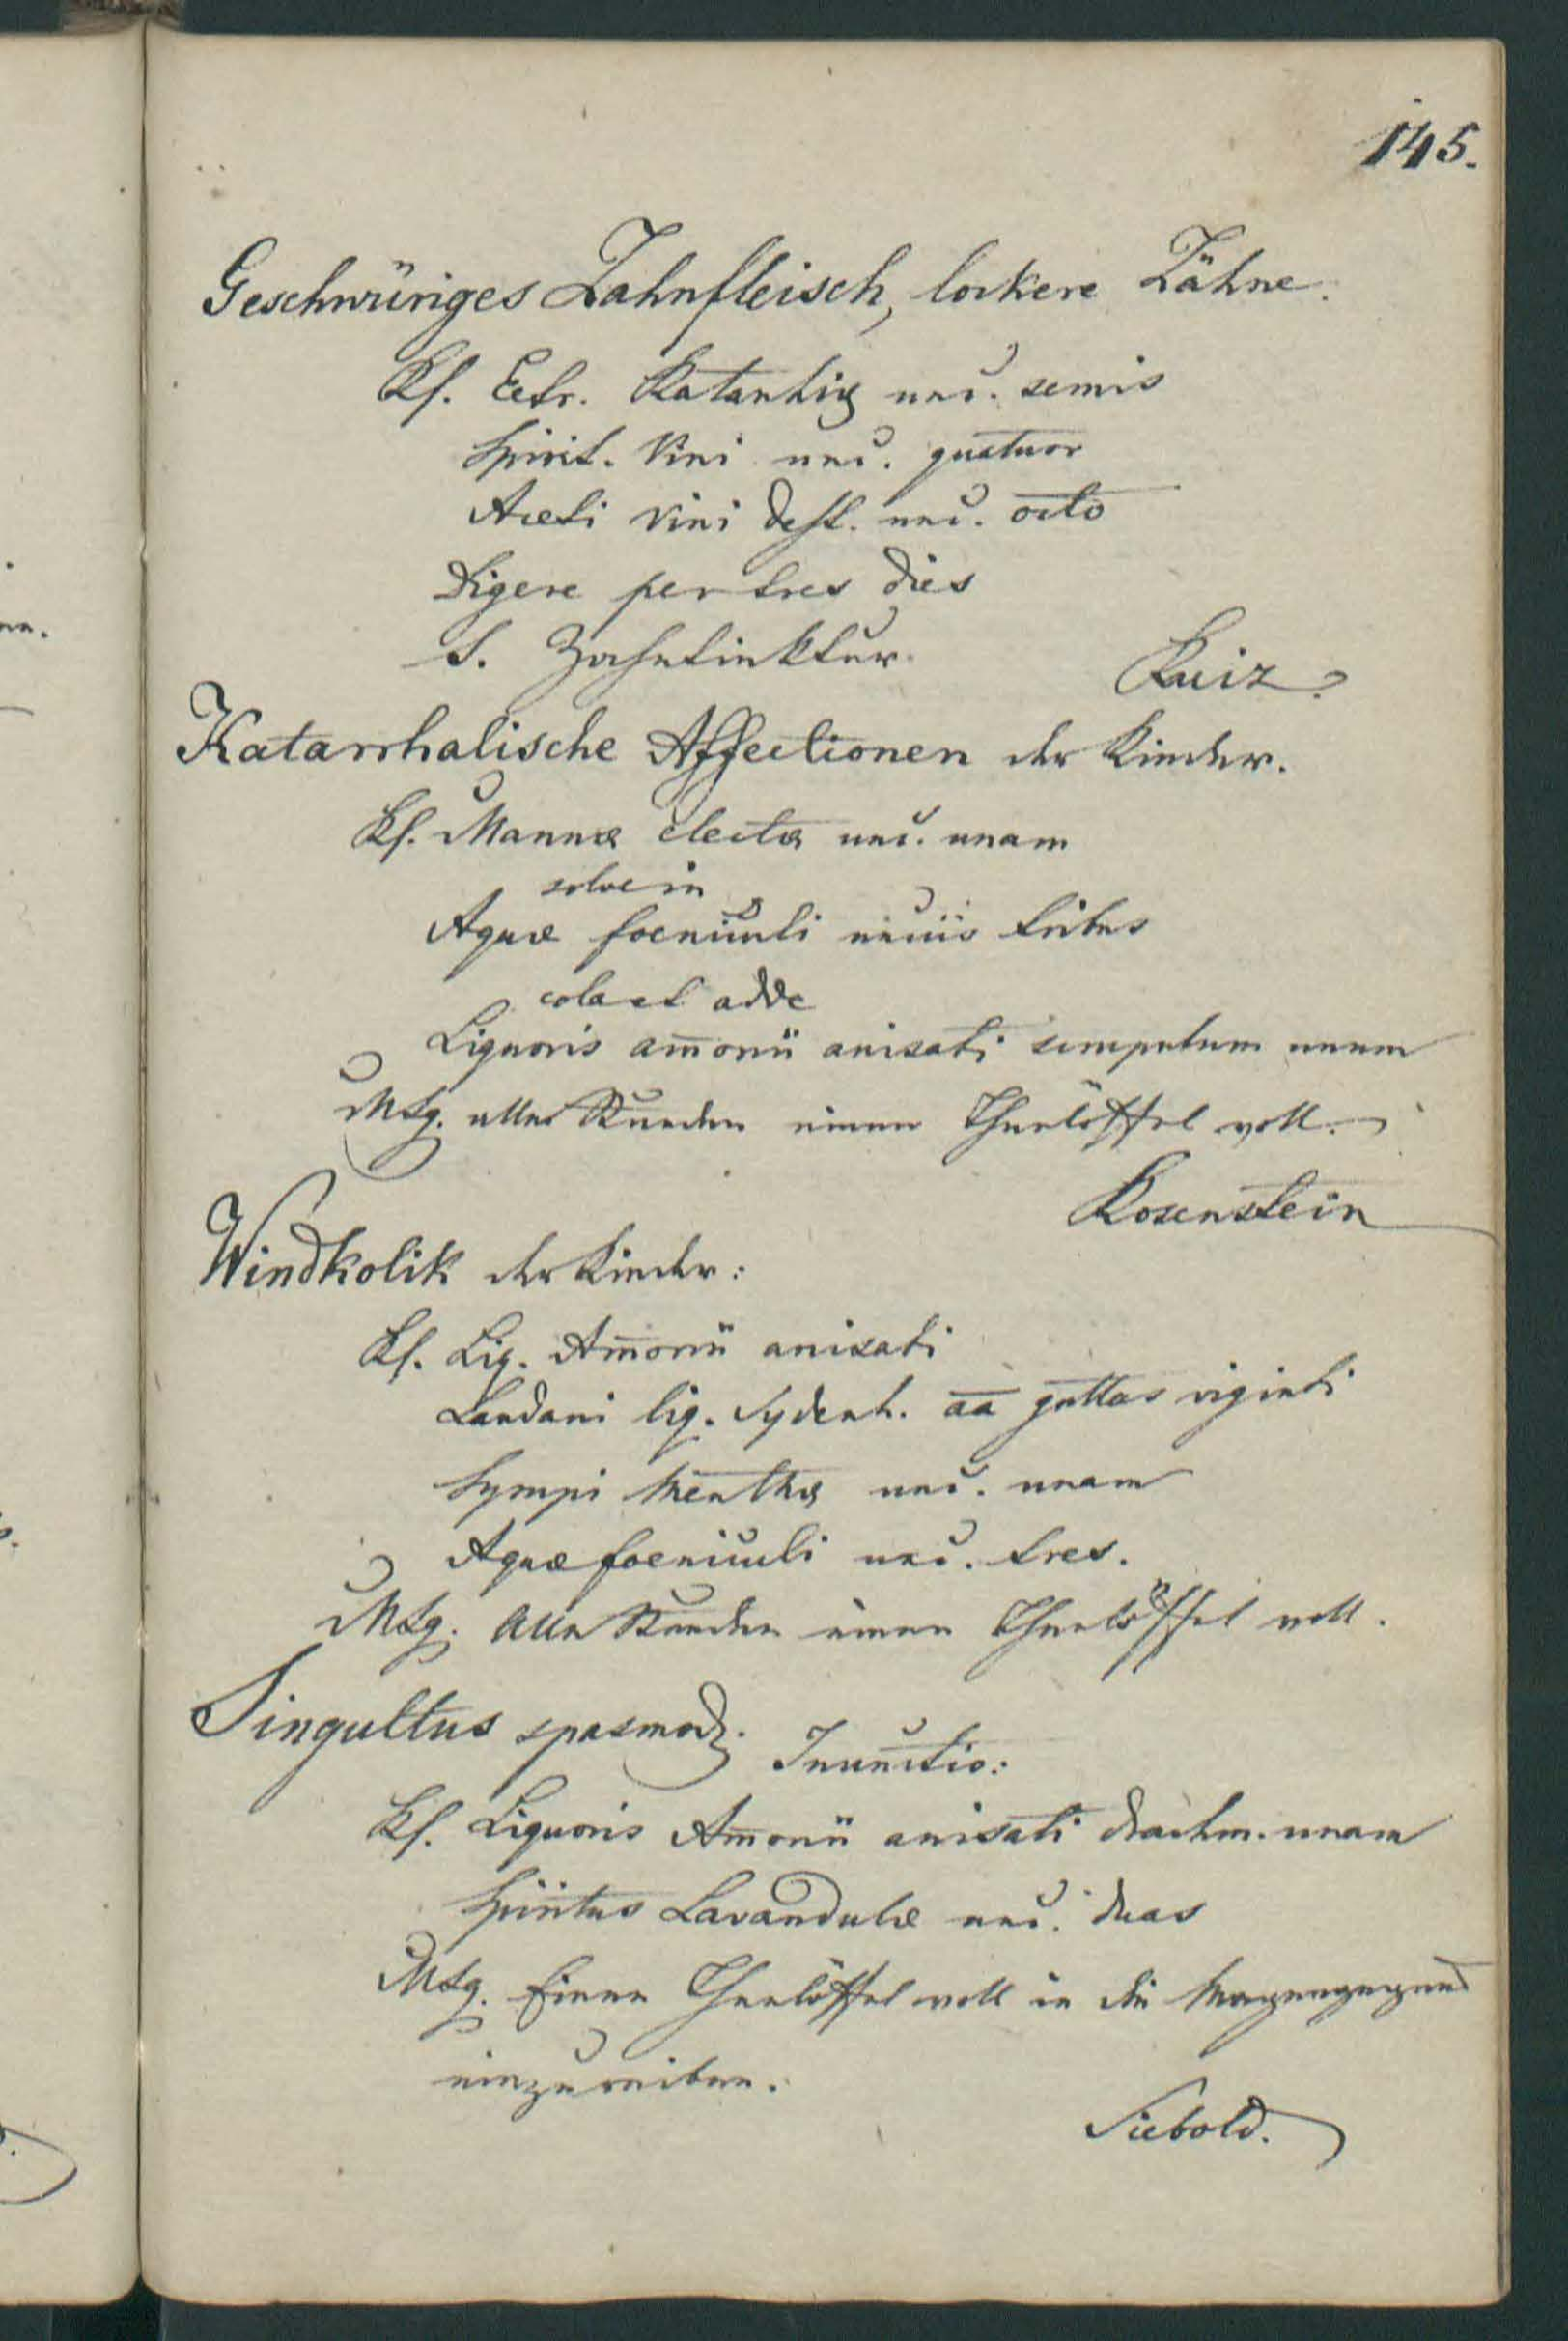 145.
Geschwüriges Zahnfleisch, lockere Zähne.
Rf. Extr. Ratanhiæ unc. semis
Spirit. Vini unc. quatuor
Aceti vini dest. unc. octo
Digere per tres dies
S. Zahntinktur.
Ruiz.
Katarrhalische Affectionen der Kinder.
Rf. Mannæ electæ unc. unam
solve in
Aquæ foeniculi unciis tribus
cola et adde
Liquoris am̄onii anisati scrupulum unum
MSg. alle Stunden einen Theelöffel voll.
Rosenstein
Windkolik der Kinder:
Rf. Liq. Am̄onii anisati
Laudani liq. Sydenh. aa guttas viginti
Syrupi Menthæ unc. unam
Aquæ foeniculi unc. tres.
MSg. Alle Stunden einen Theelöffel voll.
Singultus spasmod.
Inunctio:
Rf. Liquoris Am̄onii anisati drachm. unam
Spiritus Lavandulæ unc. duas
MSg. Einen Theelöffel voll in die Magengegend
einzureiben.
Siebold.